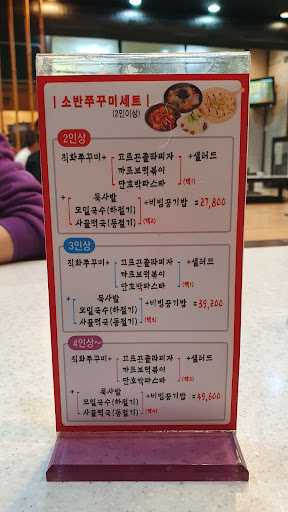 | 소반쭈꾸미세트 |
(2인이상)
2인상
직화쭈꾸미+ 고르곤졸라피자 +샐러드
까르보떡볶이
단호박파스타 (택1)
+ 묵사발 +비빔공기밥 =27,800
모밀국수(하절기)
사골떡국(동절기) (택2)
3인상
직화쭈꾸미+ 고르곤졸라피자 +샐러드
까르보떡볶이
단호박파스타 (택1)
+ 묵사발 +비빔공기밥 =39,200
모밀국수(하절기)
사골떡국(동절기) (택3)
4인상~
직화쭈꾸미+ 고르곤졸라피자 +샐러드
까르보떡볶이
단호박파스타 (택2)
+ 묵사발 +비빔공기밥 =49,600
모밀국수(하절기)
사골떡국(동절기) (택4)